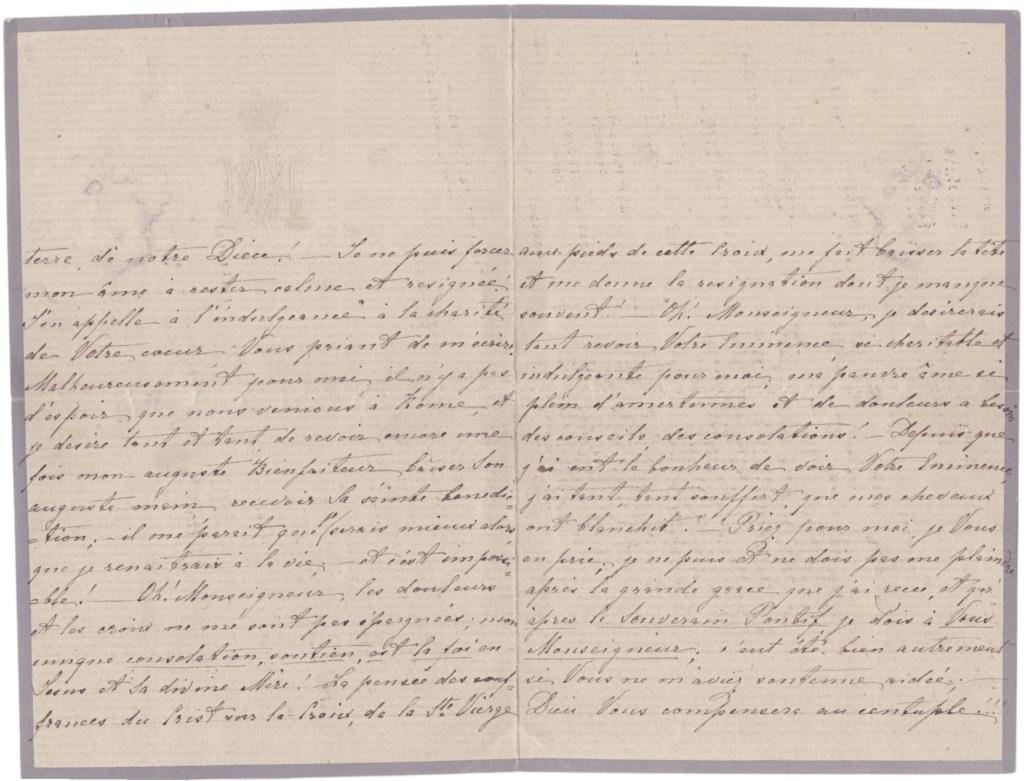 terre, de notre Dieu! — Je ne puis forcer
mon âme a rester calme et resignée,
J'en appelle à l'indulgeance à la charité
de Votre coeur Vous priant de m'écrire.
Malheureusement pour moi, il n'y a pas
d'espoir que nous venions à Rome, et
je desire tant et tant de revoir encore une
fois mon auguste Bienfaiteur, baiser Son
auguste main, recevoir Sa sainte benedi-
-tion, — il me parait que j'serais mieux alors
que je renaitrais à la vie, — et c'est impossi-
-ble! — Oh! Monseigneur, les douleurs
et les croix ne me sont pas épargnées, mon
unnique consolation, soutien, est la foi en
Jesus et Sa divine Mère! La pensée des souf-
frances du Crist sur la Croix, de la Ste Vierge
aux pieds de cette Croix, me fait baisser la tête
et me donne la resignation dont je manque
souvent! — Oh! Monseigneur, je desirerais
tant revoir Votre Eminence si charitable et
indulgente pour moi, ma pauvre âme si
plein d'amertumes et de douleurs a besoin
des conseils des consolations! — Depuis que
j'ai eut le bonheur de voir Votre Eminence,
j'ai tant, tant souffert que mes cheveux
ont blanchit! — Priez pour moi je Vous
en prie, je ne puis et ne dois pas me plaindre
après la grande grace que j'ai recue, et qu'
après le Souverain Pontif je dois à Vous
Monseigneur, c'eut été bien autrement
si Vous ne m'aviez soutenue aidée; —
Dieu Vous compensera au centuple!!!